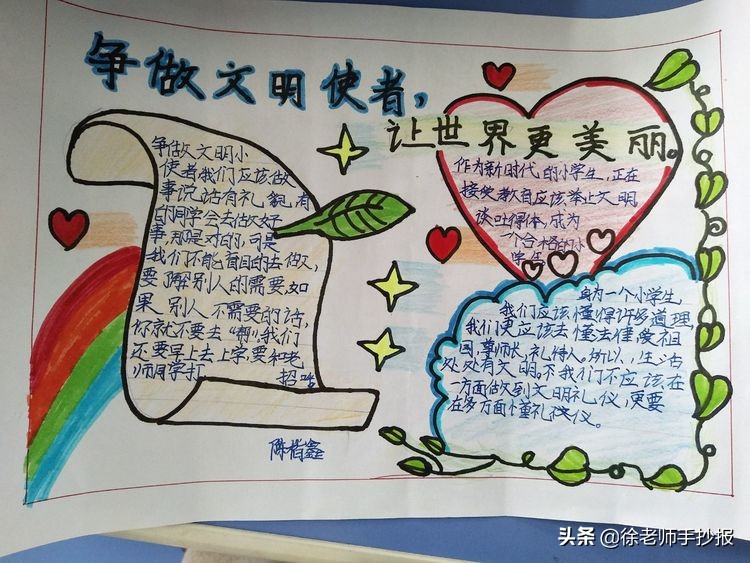 争做文明使者,
让世界更美丽。
争做文明小
使者我们应该做
事说话有礼貌,有
的同学会去做好
事,那是对的,可是
我们不能盲目的去做,
要了解别人的需要,如
果别人不需要的话,
你就不要去“帮”我们
还要早上去上学,要和老
师同学打
招呼
陈楷鑫
作为新时代的小学生,正在
接受教育应该举止文明
谈吐得体,成为
一个合格的小
学生
身为一个小学生
我们应该懂得许多道理,
我们更应该去懂法律,爱祖
国,尊师长,礼待人,所以,生活
处处有文明,不我们不应该在
一方面做到文明礼仪,更要
在多方面懂礼仪。
头条@徐老师手抄报